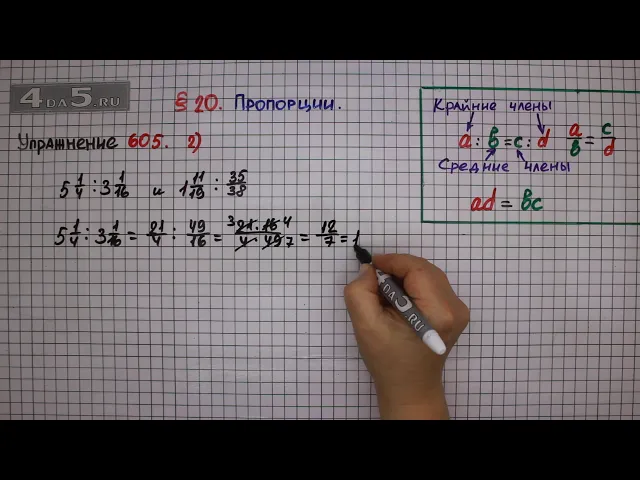 4DA5.RU
§ 20. Пропорции.
Упражнение 605. 2)
5 1/4 : 3 1/16 и 1 11/19 : 35/38
5 1/4 : 3 1/16 = 21/4 : 49/16 = 3 21 · 16 4 / 4 · 49 7 = 12/7 = 1
Крайние члены
a : b = c : d a/b = c/d
Средние члены
ad = bc
4DA5.RU